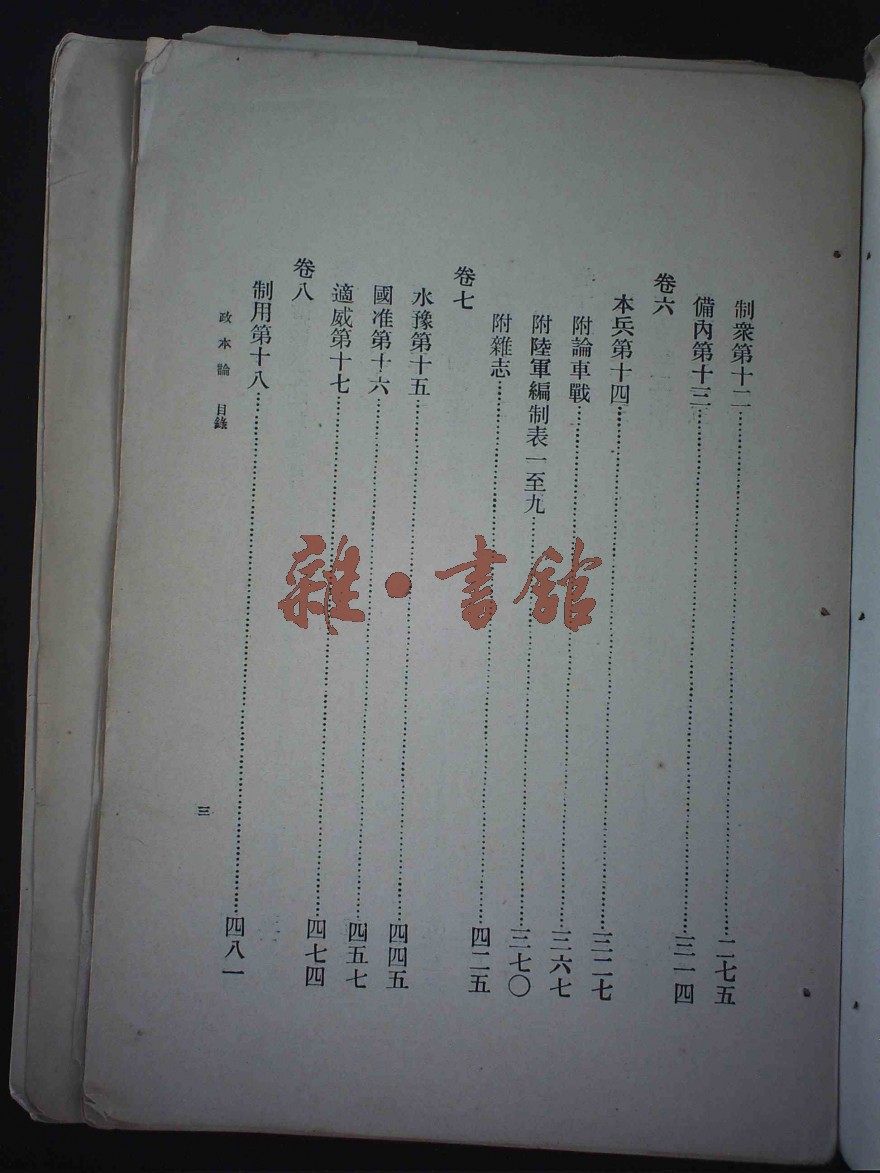 制衆第十二……二七五
備內第十三……三一四
卷六
本兵第十四……三二七
附論車戰……三六七
附陸軍編制表一至九……三七〇
附雜志……四二五
卷七
水豫第十五……四四五
國准第十六……四五七
適威第十七……四七四
卷八
制用第十八……四八一
政本論 目錄
三
雜·書館